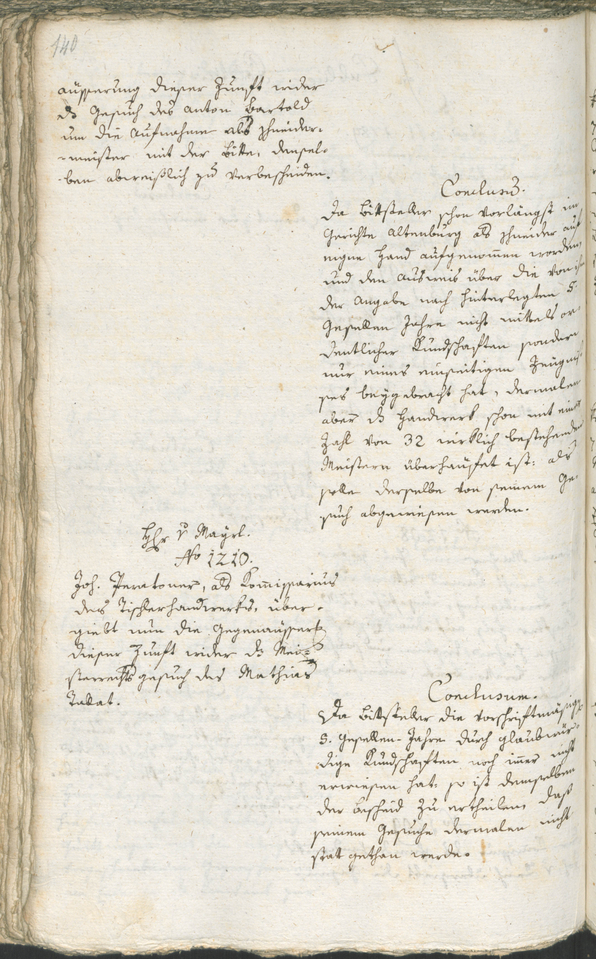 140
äusserung dieser Zunft wider
ds Gesuch des Anton Bartold
um die Aufnahme als Schneider-
-meister mit der Bitte, densel-
-ben abweißlich zu verbescheiden.
Conclusum.
Da Bittsteller schon vorlängst im
Gerichte Altenburg als Schneider auf
eigne Hand aufgenommen worden,
und den Ausweis über die von ihm
der Angabe nach hinterlegten 5
Gesellen Jahre nicht mittels or-
dentlicher Kundschaften sondern
nur eines einseitigen Zeugnis-
ses beygebracht hat, dermalen
aber ds Handwerk schon mit einer
Zahl von 32 wirklich bestehenden
Meistern überhäufet ist: als
solle derselbe von seinem Ge-
such abgewiesen werden.
Hr v Mayrl.
No 1210.
Joh. Penatoner, als Kommissarius
des Tischlerhandwerks, über-
giebt nun die Gegenäusserg
dieser Zunft wider ds Mei-
sterrechtsgesuch des Mathias
Takat.
Conclusum.
Da Bittsteller die vorschriftmäsige
5. Gesellen-Jahre durch glaubwür-
dige Kundschaften noch imer nicht
erwiesen hat: so ist demselben
der Bescheid zu ertheilen, daß
seinem Gesuche dermalen nicht
stat gethan werde.